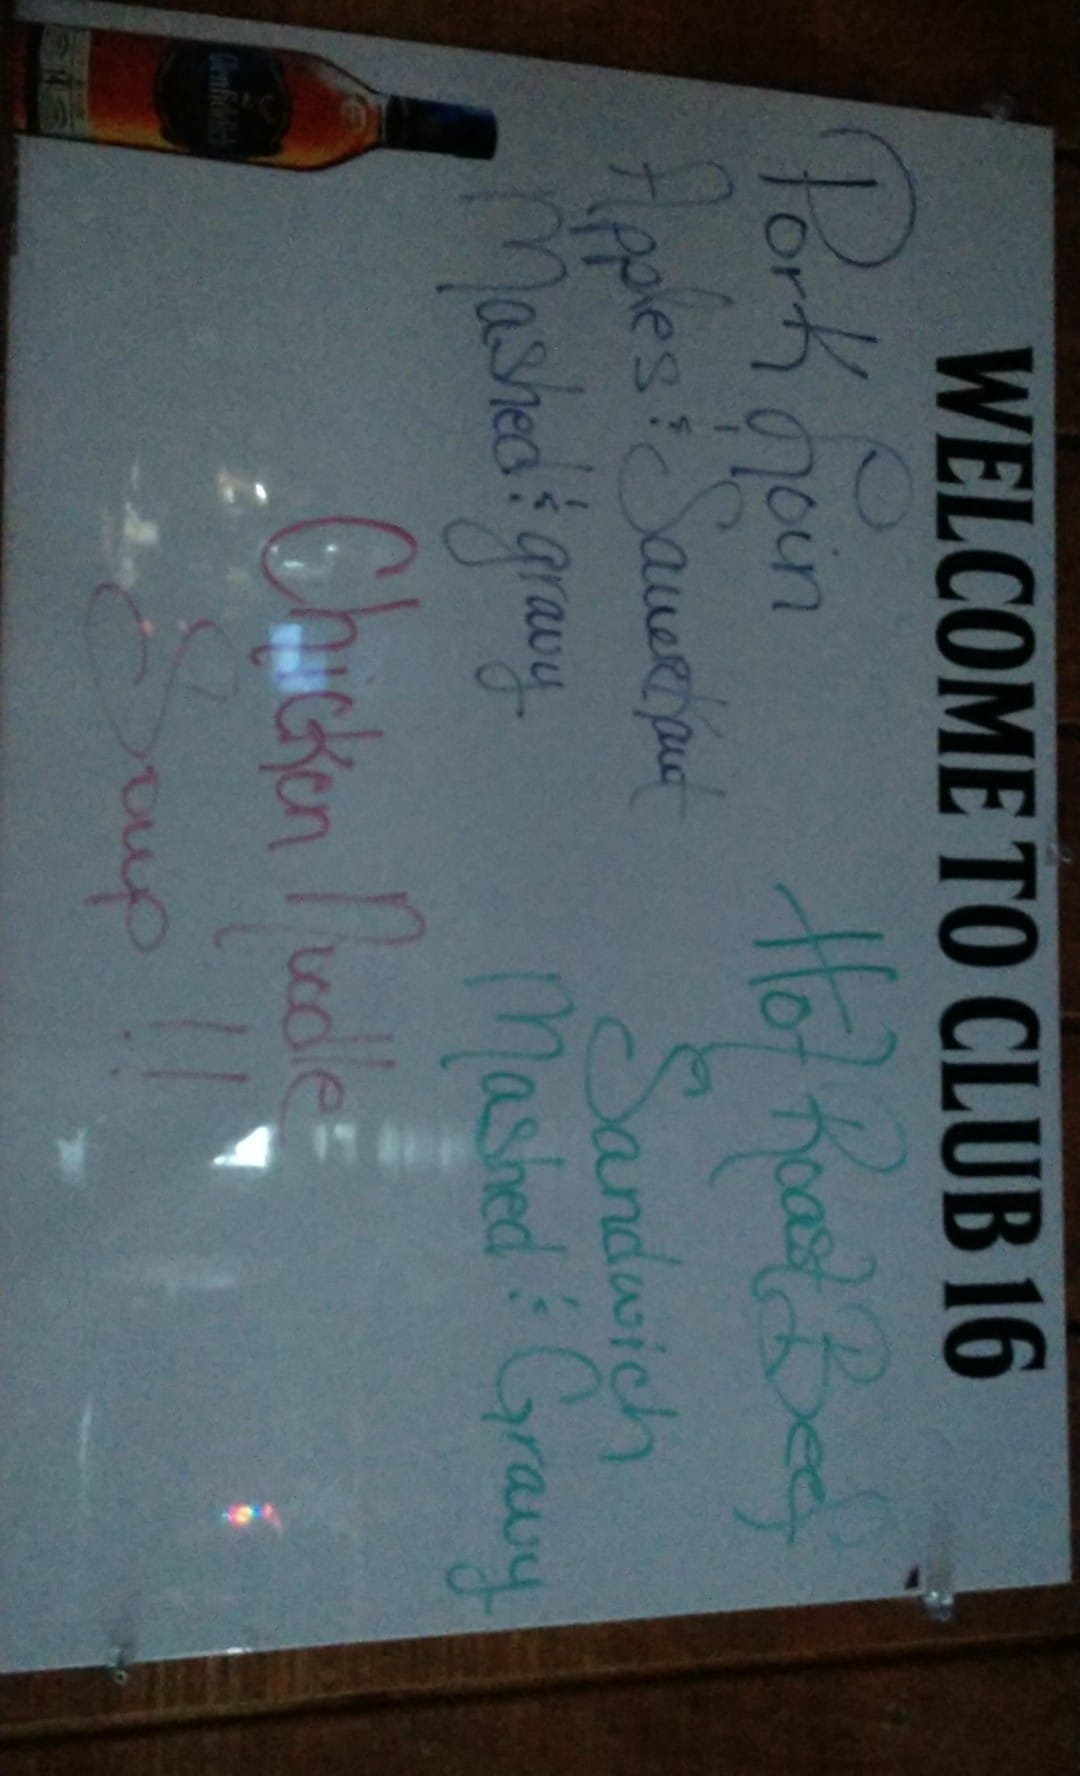 WELCOME TO CLUB 16
Pork Loin
Apples & Sauerkraut
Mashed & gravy
Hot Roast Beef
Sandwich
Mashed & Gravy
Chicken Nudle
Soup !!
Glenfiddich